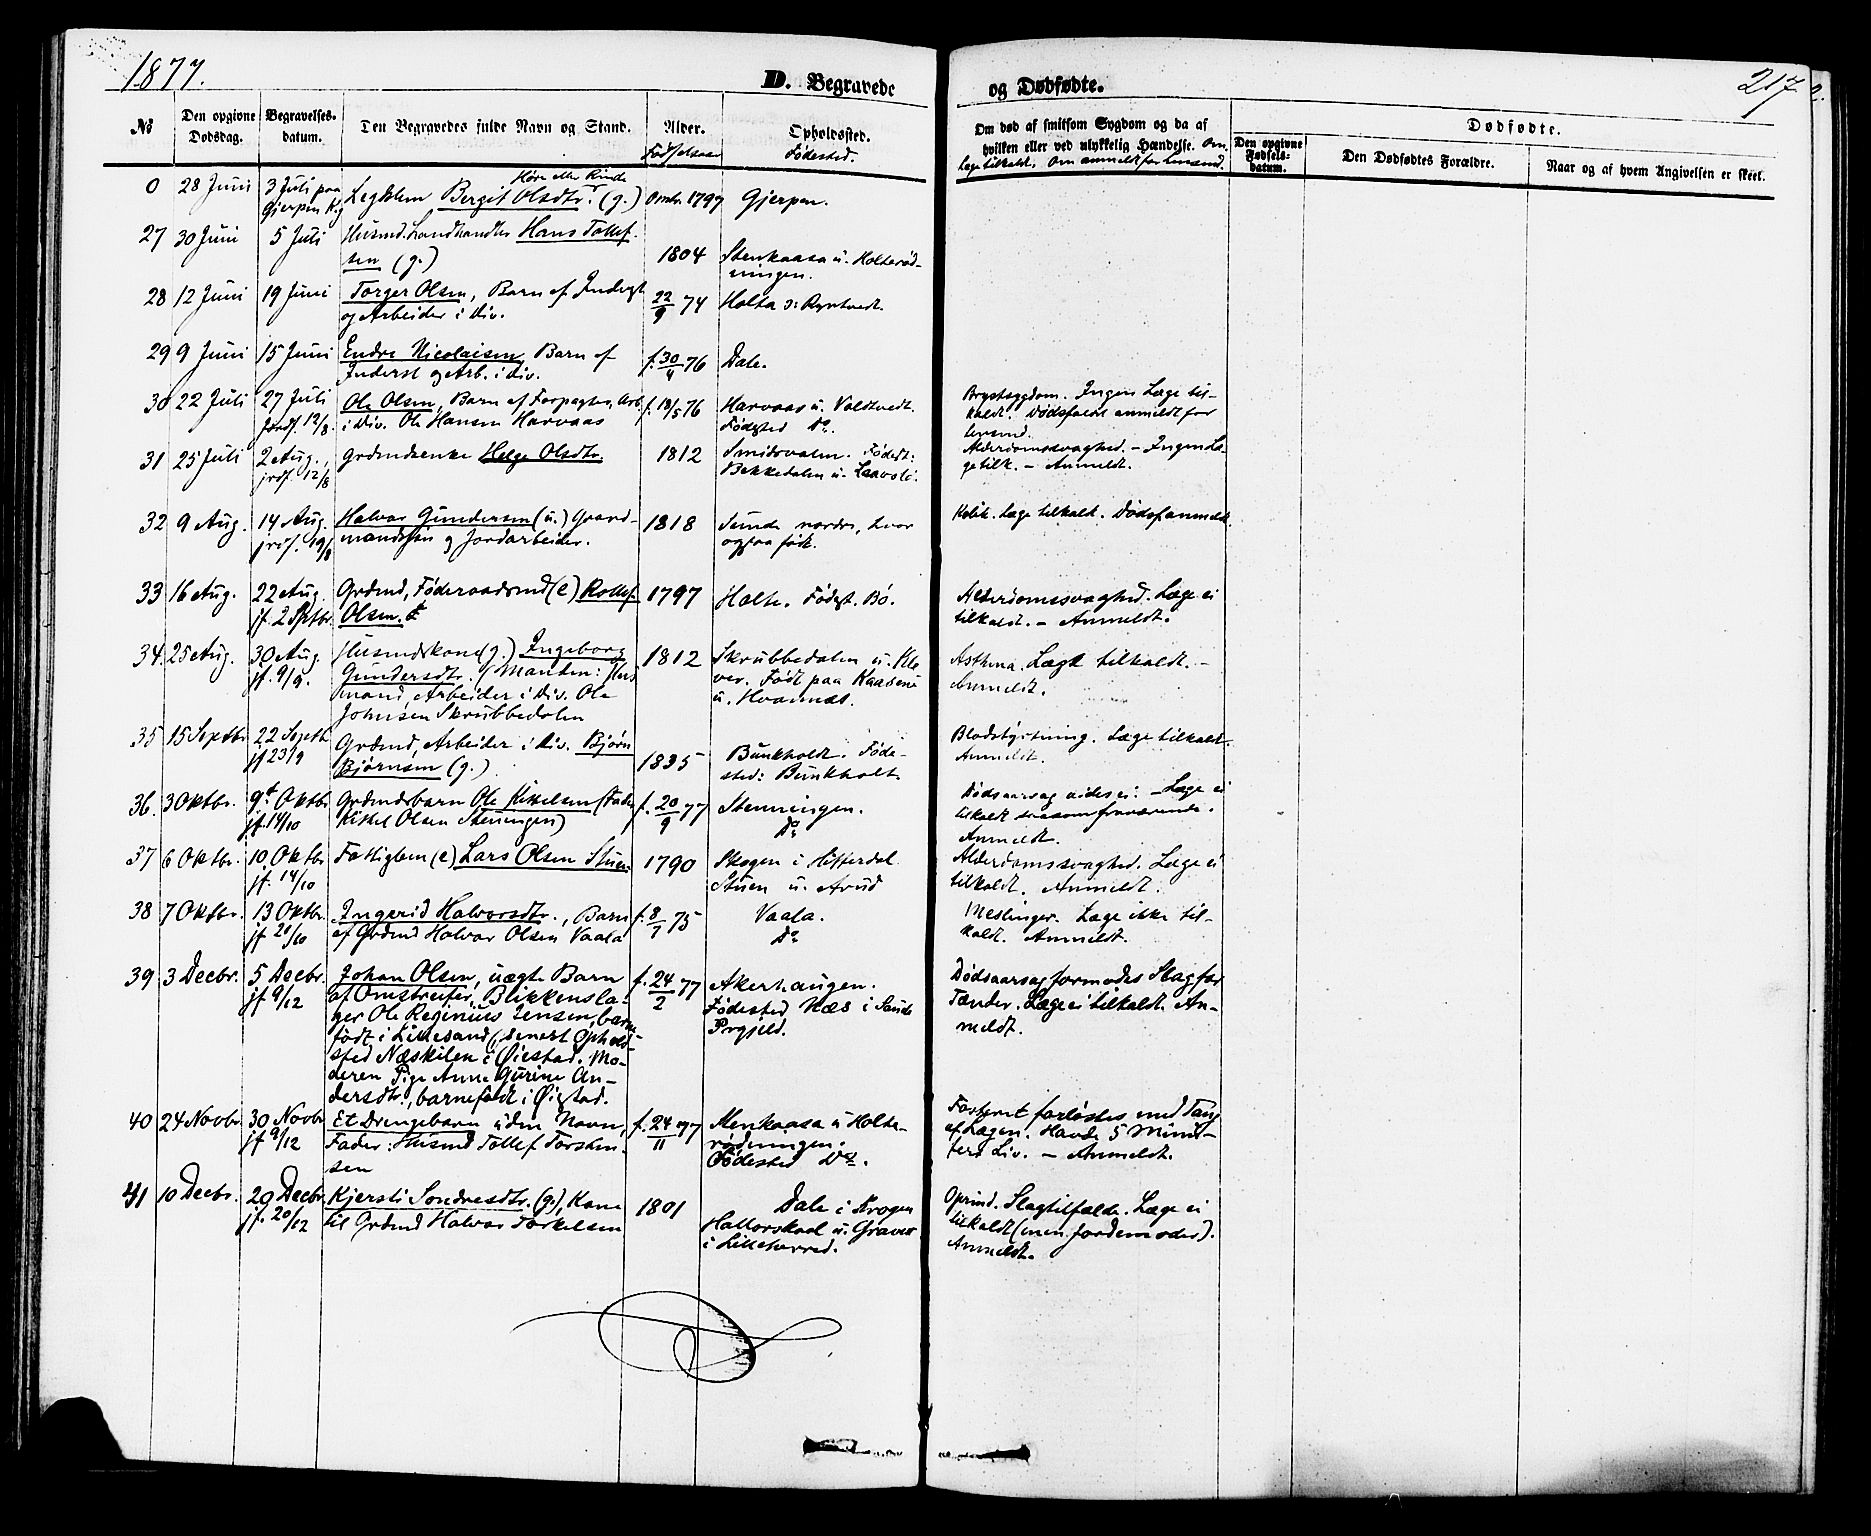 1877.
D. Begravede
og Dødfødte.
217
№
Den opgivne Dødsdag.
Begravelses-datum.
Den Begravedes fulde Navn og Stand.
Alder.
Fødselsaar
Opholdssted.
Fødested.
Om død af smitsom Sygdom og da af
hvilken eller ved ulykkelig Hændelse. Om
Lægetilkaldt. Om anmeldt for Lensmd.
Dødfødte.
Den opgivne Fødsels-datum.
Den Dødfødtes Forældre.
Naar og af hvem Angivelsen er skeet.
0 28 Juni 3 Juli paa Gjerpen Kg
Legdslem Bergit Olsdtr. (g.) Omtr. 1797 Gjerpen.
27 30 Juni 5 Juli Husmd. Landhandler Hans Tollef-
sen (g.) 1804 Stenkaasa u. Holterød-
ningen.
28 12 Juni 19 Juni Torger Olsen, Barn af Inderst
og Arbeider i Div. 22/9 74 Holta
29 9 Juni 15 Juni Endre Nicolaisen, Barn af
Inderst og Arb. i Div. f. 30/4 76 Dale.
30 22 Juli 27 Juli Jordf. 12/8. Ole Olsen, Barn af Forpagter, Arb.
i Div. Ole Hansen Harvaas f. 18/5 76 Harvaas u. Valdtvedt.
Fødested Do.
Brystsygdom. Ingen Læge til-
kaldt. Dødsfaldet anmeldt for
Lensmd.
31 25 Juli 2 Aug. jrdf. 12/8 Grdmdsenke Helge Olsdtr. 1812 Smidsvalm. Fødest:
Bekkedalen u. Laavslì.
Alderdomssvaghed. – Ingen Læ-
getilk. – Anmeldt.
32 9 Aug. 14 Aug. jrdf. 19/8 Halvor Gundersen (u.) Gaard-
mandssøn og Jordarbeider. 1818 Sunde nordre, hvor
ogsaa født.
Kolik. Læge tilkaldt. Dødsf. anmeldt.
33 16 Aug. 22 Aug. jf. 2 Sptbr. Grdmd, Føderaadsmd (e) Rollef
Olsen. 1797 Holte. Fødest. Bø.
Alderdomssvaghed. Læge ei
tilkaldt. – Anmeldt.
34 25 Aug. 30 Aug. jf. 9/9. Husmdskone (g.) Ingeborg
Gundersdtr. Manden: Hus
mand, Arbeider i Div. Ole
Johnsen Skrubbedalen
1812 Skrubbedalen u. Kle
ver. Født paa Kaasene
u. Hvamnæs.
Asthma. Læge tilkaldt. –
Anmeldt.
35 15 Septbr 22 Septb jf 23/9 Grdmd, Arbeider i Div. Bjørn
Bjørnsen (g.) 1835 Bunkholdt. Føde-
sted: Bunkholt
Blodstyrtning. Læge tilkaldt.
Anmeldt.
36. 3 Oktbr. 9de Oktbr jf. 14/10 Grdmdsbarn Ole Kittelsen (Fader
Kittel Olsen Stenningen) f. 20/9 77 Stenningen.
Do
Dødsaarsag vides ei. – Læge ei
tilkaldt saasom fraværende.
Anmeldt.
37 6 Oktbr. 10 Oktbr jf. 14/10 Fattiglem (e) Lars Olsen Stuen. 1790 Skogen i Hitterdal
Stuen u. Arud
Alderdomssvaghed. Læge ei
tilkaldt. Anmeldt.
38 7 Oktbr. 13 Oktbr. jf 21/10 Ingerid Halvorsdtr., Barn
af Grdmd Halvor Olsen Vaala f. 8/7 75 Vaala.
Do
Meslinger. Læge ikke til-
kaldt. Anmeldt.
39 3 Decbr. 5 Decbr. jf 9/12 Johan Olsen, uægte Barn
af Omstreifer, Blikkensla-
ger Ole Reginius Jensen, barn
født i Lillesand (, senest Ophold-
sted Næskilen i Øiestad. Mo-
deren Pige Anne Gurine An-
dersdtr., barnefødt i Øiestad.
f. 24/2 77 Akerhaugen.
Fødested Næs i Sande
Prgjeld.
Dødsaarsag formodes Slag for
Tænder. Læge ei tilkaldt. An-
meldt.
40 24 Novbr. 30 Novbr jf 9/12 Et Drengebarn uden Navn,
Fader: Husmd Tollef Torsten-
sen f. 24/11 77 Stenkaasa u Holte-
rødningen.
Fødested Do.
Fosteret forløstes med Tang
af Lægen. Havde 5 Minut-
ters Liv. – Anmeldt.
41 10 Decbr. 20 Decbr jf. 20/12 Kjersti Sondresdtr. (g.), Kone
til Grdmd Halvor Torkelsen 1801 Dale i Skogen
u. Graver
i Lilleherred.
Oprind. Slagtilfælde. Læge ei
tilkaldt.
Anmeldt.